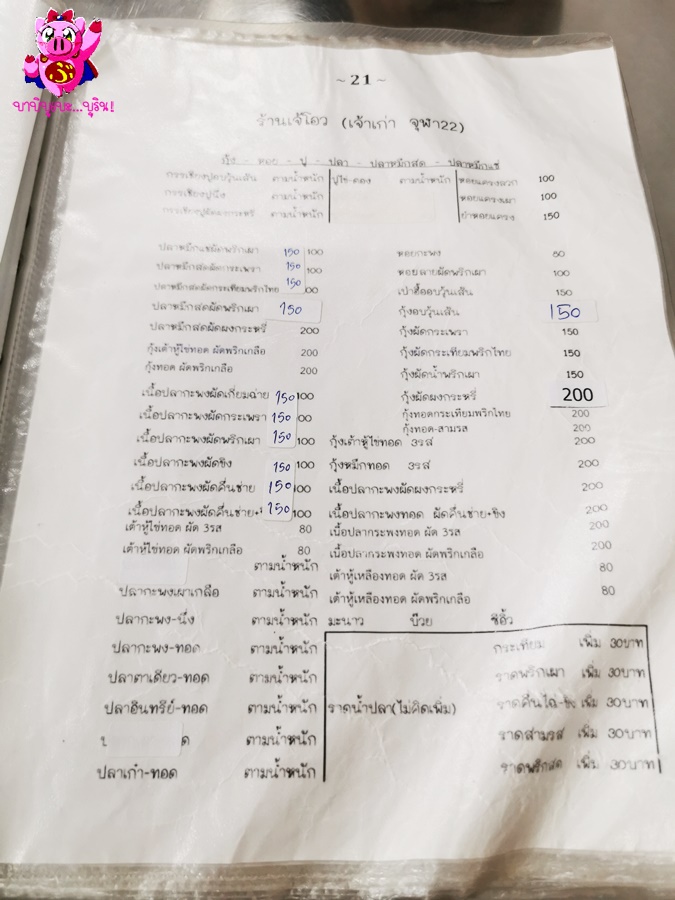 บาบิบูเบะ...บูริน!
~ 21 ~
ร้านเจ้โอว (เจ้าเก่า จุฬา22)
กุ้ง - หอย - ปู - ปลา - ปลาหมึกสด - ปลาหมึกแช่
กรรเชียงปูอบวุ้นเส้น ตามน้ำหนัก ปูไข่-ดอง ตามน้ำหนัก หอยแครงลวก 100
กรรเชียงปูนึ่ง ตามน้ำหนัก หอยแครงเผา 100
กรรเชียงปูผัดผงกะหรี่ ตามน้ำหนัก ยำหอยแครง 150
ปลาหมึกแช่ผัดพริกเผา 150 100 หอยกะพง 80
ปลาหมึกสดผัดกระเพรา 150 100 หอยลายผัดพริกเผา 100
ปลาหมึกสดผัดกระเทียมพริกไทย 150 00 เป๋าฮื้ออบวุ้นเส้น 150
ปลาหมึกสดผัดพริกเผา 150 กุ้งอบวุ้นเส้น 150
ปลาหมึกสดผัดผงกระหรี่ 200 กุ้งผัดกระเพรา 150
กุ้งเต้าหู้ไข่ทอด ผัดพริกเกลือ 200 กุ้งผัดกระเทียมพริกไทย 150
กุ้งทอด ผัดพริกเกลือ 200 กุ้งผัดน้ำพริกเผา 150
เนื้อปลากะพงผัดเกี่ยมฉ่าย 150 100 กุ้งผัดผงกระหรี่ 200
เนื้อปลากะพงผัดกระเพรา 150 00 กุ้งทอดกระเทียมพริกไทย 200
กุ้งทอด-สามรส 200
เนื้อปลากะพงผัดพริกเผา 150 100 กุ้งเต้าหู้ไข่ทอด 3รส 200
เนื้อปลากะพงผัดขิง 150 100 กุ้งหมึกทอด 3รส 200
เนื้อปลากะพงผัดคื่นช่าย 150 100 เนื้อปลากะพงผัดผงกระหรี่ 200
เนื้อปลากะพงผัดคื่นช่าย+ 150 100 เนื้อปลากะพงทอด ผัดคื่นช่าย+ขิง 200
เต้าหู้ไข่ทอด ผัด 3รส 80 เนื้อปลากระพงทอด ผัด 3รส 200
เต้าหู้ไข่ทอด ผัดพริกเกลือ 80 เนื้อปลากระพงทอด ผัดพริกเกลือ 200
ตามน้ำหนัก เต้าหู้เหลืองทอด ผัด 3รส 80
ปลากะพงเผาเกลือ ตามน้ำหนัก เต้าหู้เหลืองทอด ผัดพริกเกลือ 80
ปลากะพง-นึ่ง ตามน้ำหนัก มะนาว บ๊วย ซีอิ้ว
ปลากะพง-ทอด ตามน้ำหนัก กระเทียม เพิ่ม 30บาท
ปลาตาเดียว-ทอด ตามน้ำหนัก ราดพริกเผา เพิ่ม 30บาท
ปลาอินทรีย์-ทอด ตามน้ำหนัก ราดน้ำปลา(ไม่คิดเพิ่ม) ราดคื่นไฉ่-ขิง เพิ่ม 30บาท
ตามน้ำหนัก ราดสามรส เพิ่ม 30บาท
ปลาเก๋า-ทอด ตามน้ำหนัก ราดพริกสด เพิ่ม 30บาท